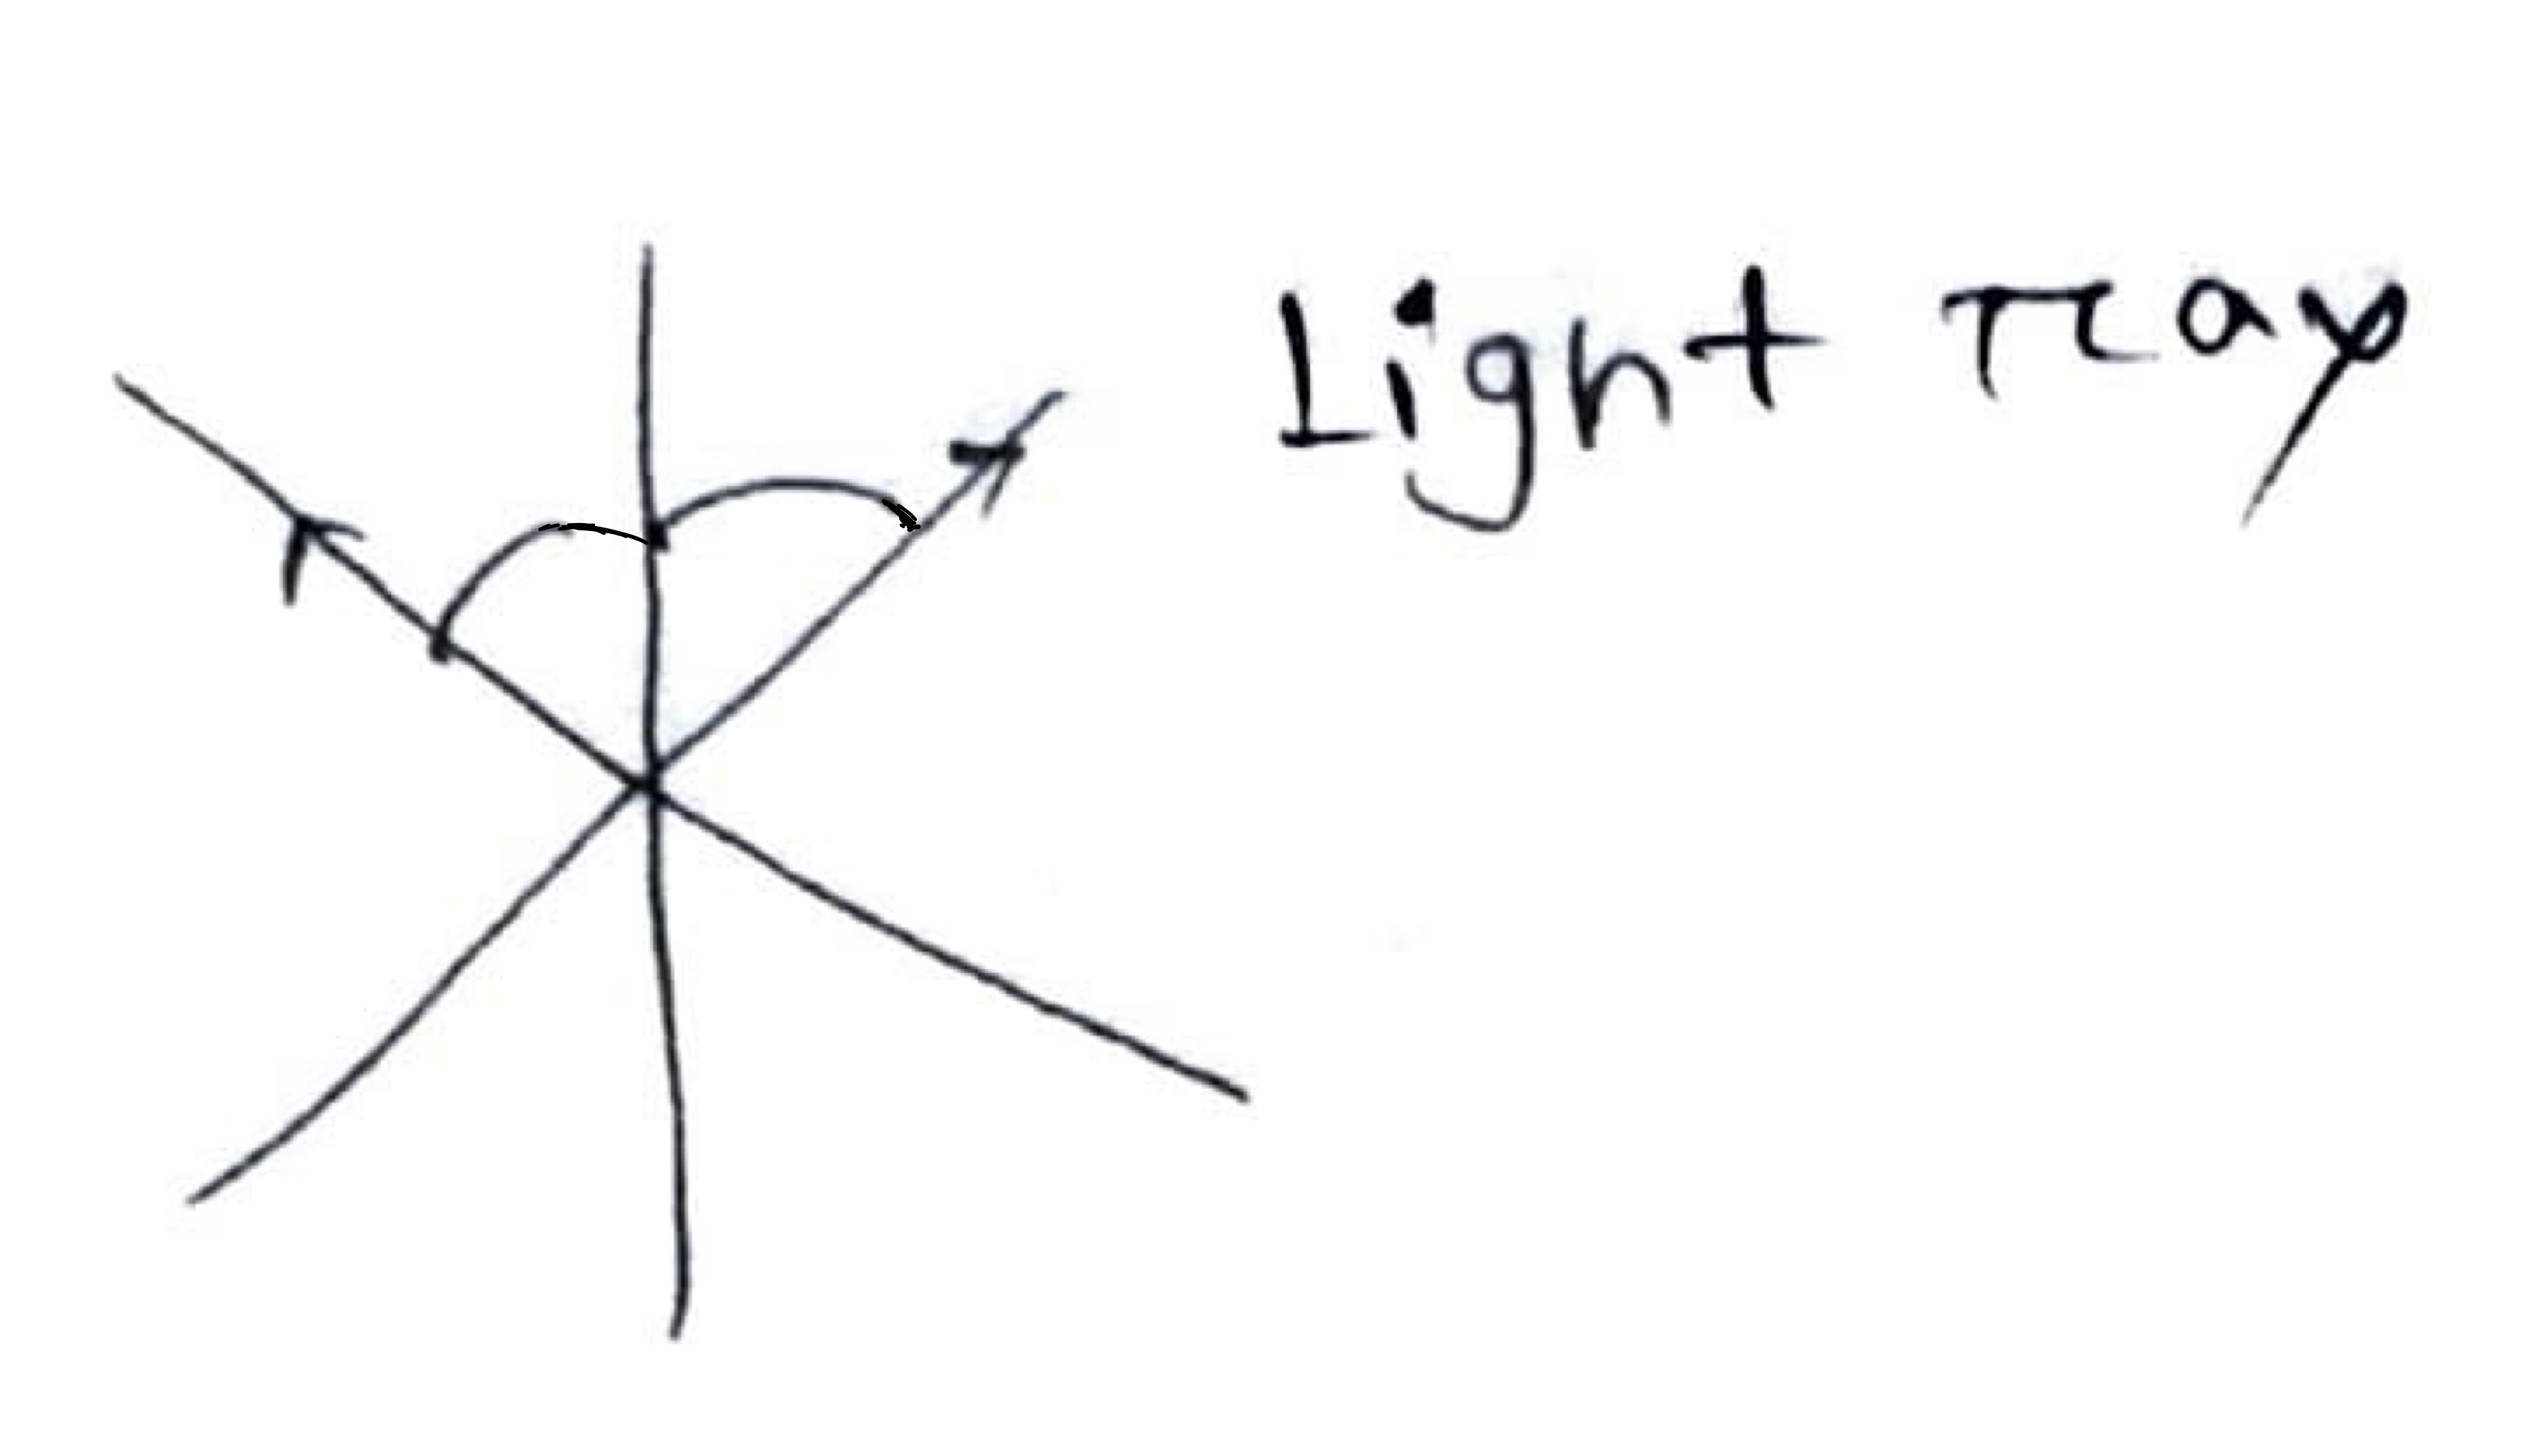 Light ray